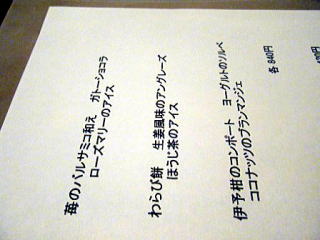 苺のバルサミコ和え ガトーショコラ
ローズマリーのアイス
わらび餅 生姜風味のアングレーズ
ほうじ茶のアイス
伊予柑のコンポート ヨーグルトのソルベ
ココナッツのブランマンジェ
各 840円